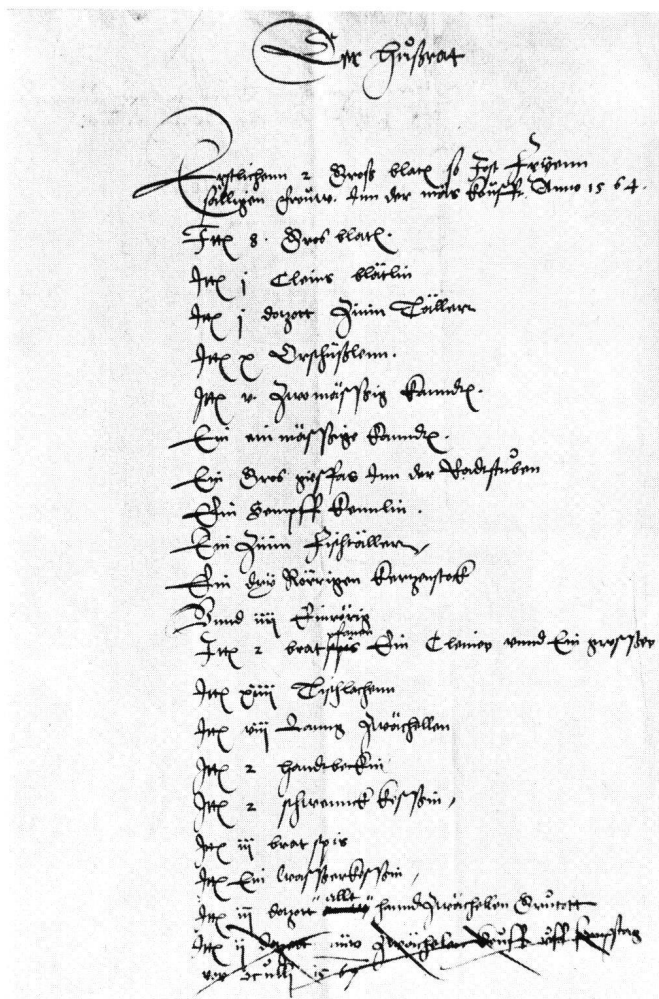 Der hußrat
Erstlichenn 2 Groß blatt so Jost Fryenn
säligen frouw. Inn der mäs kouft. Anno 1564.
Item 8. Gros blatt.
Item j Cleins blätlin
Item j dozett Zinin Täller
Item x Orschüßlenn.
Item v. Zwomässig kannd.
Ein ein mässige kannd.
Ein Gros giesfas Inn der Radtstuben
Ein Sempff kennlin.
Ein Zinin Fischtäller
Ein dry Rörrigen kerzenstok
Vnnd iiij Einrörig
pfanen
Item 2 brat spis Ein Cleiney vnnd Ein grosser
Item xiiij Tischlachenn
Item viij Lanng Zwächellen
Item 2 handtbeckin
Item 2 schwennck kessin
Item iij brat spis
Item Ein wasserkessin
allt
Item iij dozett hanndzwächellen
Item ij dozett nüw Zwächelen koufft vff
vor oculj 1567